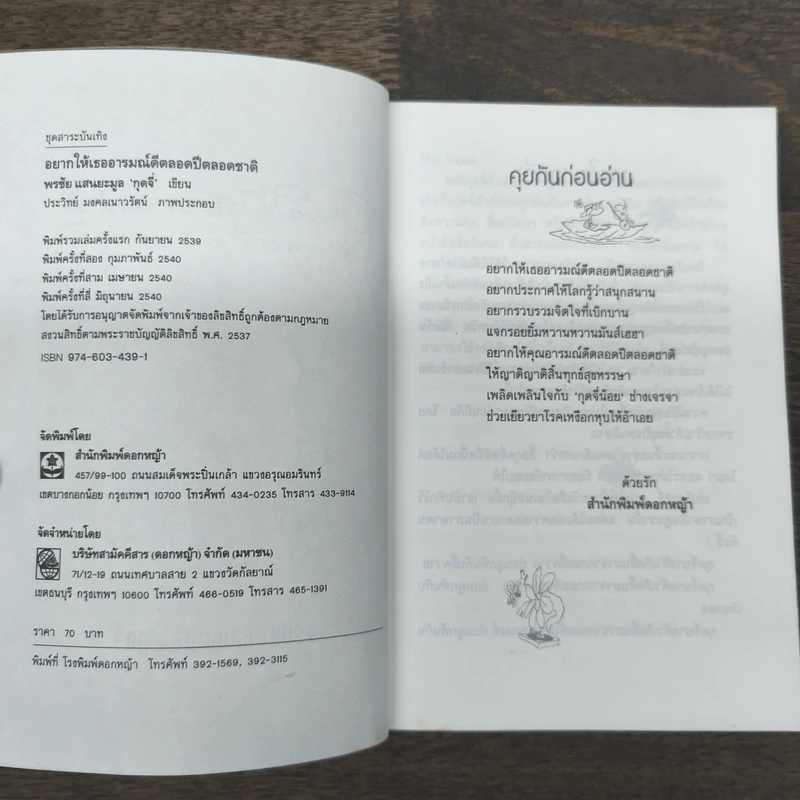 ชุดสาระบันเทิง
อยากให้เธออารมณ์ดีตลอดปีตลอดชาติ
พรชัย แสนยะมูล 'กุดจี่' เขียน
ประวิทย์ มงคลเนาวรัตน์ ภาพประกอบ
พิมพ์รวมเล่มครั้งแรก กันยายน 2539
พิมพ์ครั้งที่สอง กุมภาพันธ์ 2540
พิมพ์ครั้งที่สาม เมษายน 2540
พิมพ์ครั้งที่สี่ มิถุนายน 2540
โดยได้รับการอนุญาตจัดพิมพ์จากเจ้าของลิขสิทธิ์ถูกต้องตามกฎหมาย
สงวนสิทธิ์ตามพระราชบัญญัติลิขสิทธิ์ พ.ศ. 2537
ISBN 974-603-439-1
จัดพิมพ์โดย
สำนักพิมพ์ดอกหญ้า
457/99-100 ถนนสมเด็จพระปิ่นเกล้า แขวงอรุณอมรินทร์
เขตบางกอกน้อย กรุงเทพฯ 10700 โทรศัพท์ 434-0235 โทรสาร 433-9114
จัดจำหน่ายโดย
บริษัทสามัคคีสาร (ดอกหญ้า) จำกัด (มหาชน)
71/12-19 ถนนเทศบาลสาย 2 แขวงวัดกัลยาณ์
เขตธนบุรี กรุงเทพฯ 10600 โทรศัพท์ 466-0519 โทรสาร 465-1391
ราคา 70 บาท
พิมพ์ที่ โรงพิมพ์ดอกหญ้า โทรศัพท์ 392-1569, 392-3115
คุยกันก่อนอ่าน
อยากให้เธออารมณ์ดีตลอดปีตลอดชาติ
อยากประกาศให้โลกรู้ว่าสนุกสนาน
อยากรวบรวมจิตใจที่เบิกบาน
แจกรอยยิ้มหวานหวานมันส์เฮฮา
อยากให้คุณอารมณ์ดีตลอดปีตลอดชาติ
ให้ญาติญาติสิ้นทุกข์สุขหรรษา
เพลิดเพลินใจกับ 'กุดจี่น้อย' ช่างเจรจา
ช่วยเยียวยาโรคเหงือกหุบให้อ้าเอย
ด้วยรัก
สำนักพิมพ์ดอกหญ้า